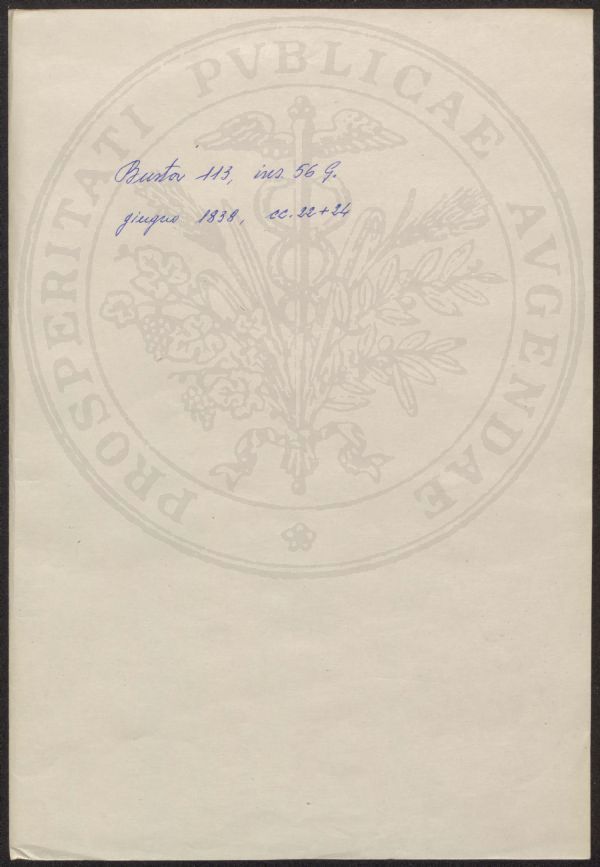 PROSPERITATI PVBLICAE AVGENDAE
Busta 113, ins. 56 G.
giugno 1838, cc. 22+24